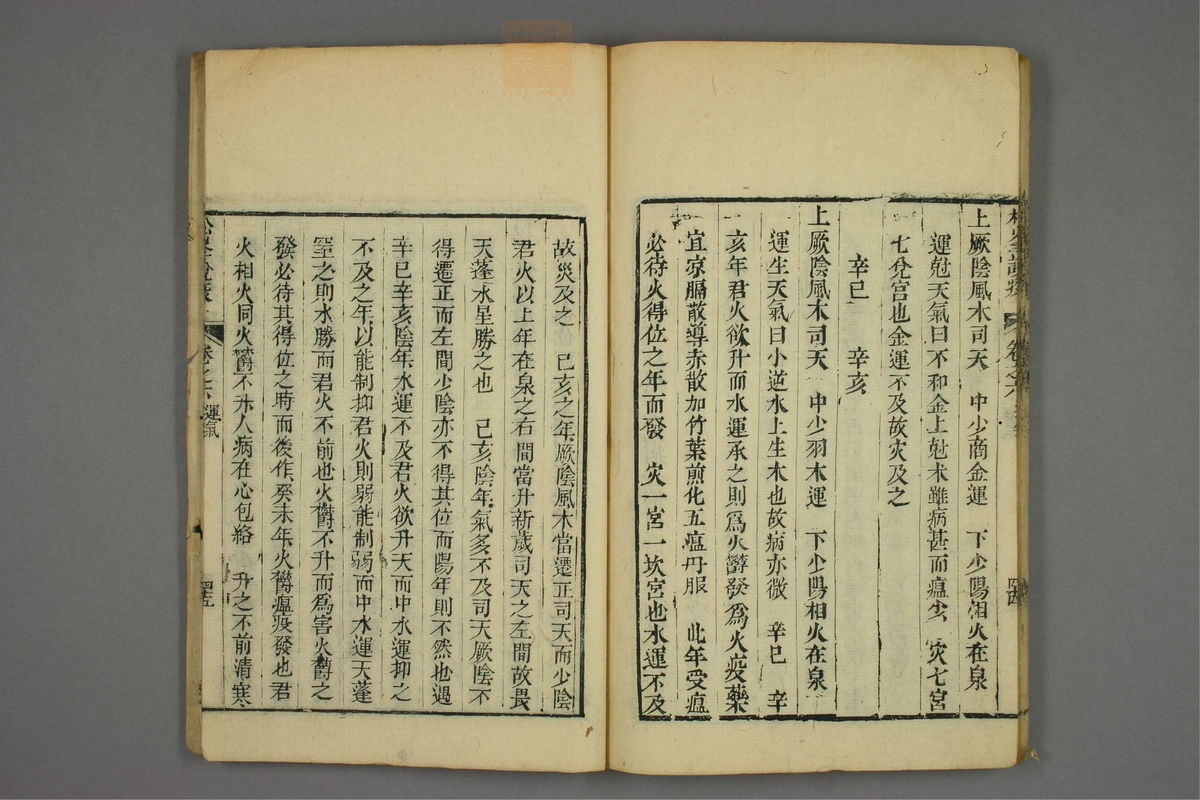 上厥陰風木司天　中少商金運　下少陽相火在泉
運尅天氣曰不和金上尅木雖病甚而瘟少　灾七宮
七兊宮也金運不及故灾及之
辛巳　辛亥
上厥陰風木司天　中少羽木運　下少陽相火在泉
運生天氣曰小逆水上生木也故病亦微　辛巳　辛
亥年君火欲升而水運承之則爲火欝發爲火疫藥
宜凉膈散導赤散加竹葉煎化五瘟丹服　此年受瘟
必待火得位之年而發　灾一宮一坎宮也水運不及
卷之六
故災及之　巳亥之年厥陰風木當遷正司天而少陰
君火以上年在泉之右間當升新歲司天之左間故畏
天蓬水星勝之也　巳亥陰年氣多不及司天厥陰不
得遷正而左間少陰亦不得其位而陽年則不然也遇
辛巳辛亥陰年水運不及君火欲升天而中水運抑之
不及之年以能制抑君火則弱能制弱而中水運天蓬
窒之則水勝而君火不前也火欝不升而爲害火欝之
發必待其得位之時而後作癸未年火欝瘟疫發也君
火相火同火欝不升人病在心包絡　升之不前清寒
松峯說疫　卷之六　運氣　四五